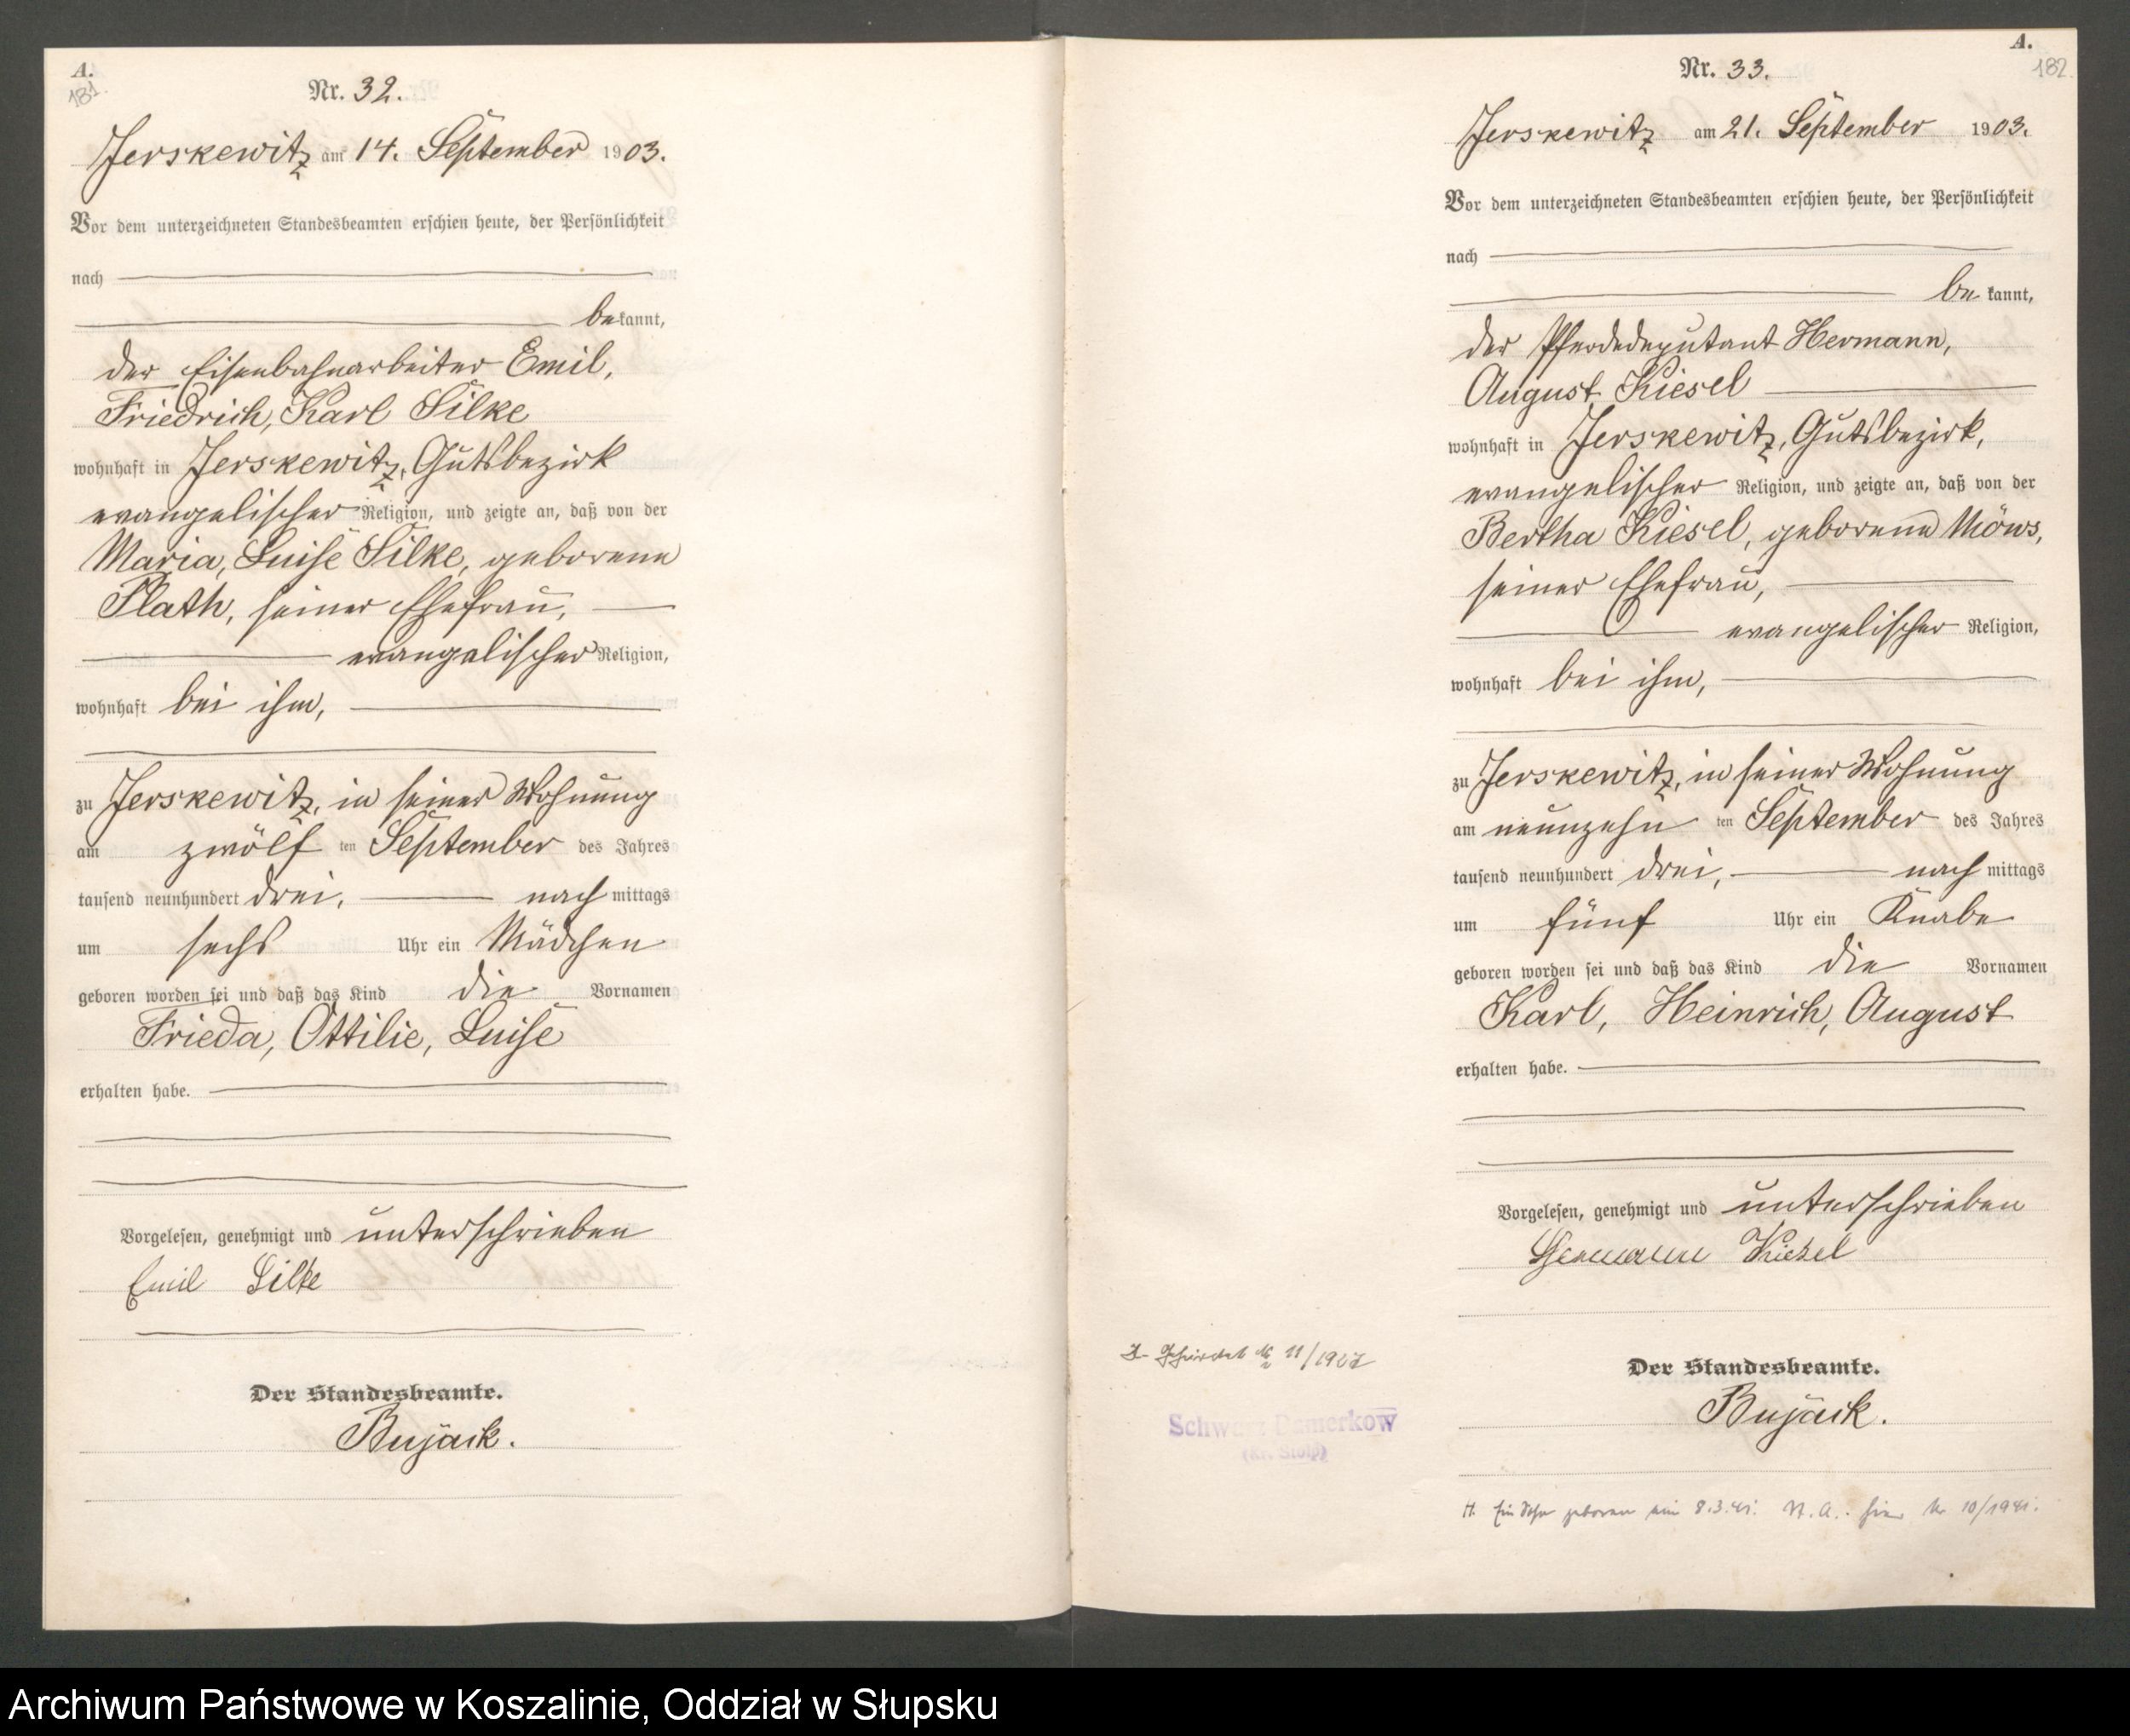 A.
181.
Nr. 32.
Jerskewitz am 14. September 1903.
Vor dem unterzeichneten Standesbeamten erschien heute, der Persönlichkeit
nach
bekannt,
der Eisenbahnarbeiter Emil,
Friedrich, Karl Silke
wohnhaft in Jerskewitz, Gutsbezirk
evangelischer Religion, und zeigte an, daß von der
Maria, Luise Silke, geborene
Plath, seiner Ehefrau,
evangelischer Religion,
wohnhaft bei ihm,
zu Jerskewitz, in seiner Wohnung
am zwölf ten September des Jahres
tausend neunhundert drei, nachmittags
um sechs Uhr ein Mädchen
geboren worden sei und daß das Kind die Vornamen
Frieda, Ottilie, Luise
erhalten habe.
Vorgelesen, genehmigt und unterschrieben
Emil Silke
Der Standesbeamte.
Bujack.
A.
182.
Nr. 33.
Jerskewitz am 21. September 1903.
Vor dem unterzeichneten Standesbeamten erschien heute, der Persönlichkeit
nach
bekannt,
der Pferdedeputant Hermann,
August Kiesel
wohnhaft in Jerskewitz, Gutsbezirk,
evangelischer Religion, und zeigte an, daß von der
Bertha Kiesel, geborene Möws,
seiner Ehefrau,
evangelischer Religion,
wohnhaft bei ihm,
zu Jerskewitz, in seiner Wohnung
am neunzehn ten September des Jahres
tausend neunhundert drei, nachmittags
um fünf Uhr ein Knabe
geboren worden sei und daß das Kind die Vornamen
Karl, Heinrich, August
erhalten habe.
Vorgelesen, genehmigt und unterschrieben
Hermann Kiesel
Der Standesbeamte.
Bujack.
№ 11/1927
Schwarz Damerkow
(Kr. Stolp)
H. Ein Sohn geboren am 8.3.41. St. A.: hier Nr 10/1941.
Archiwum Państwowe w Koszalinie, Oddział w Słupsku